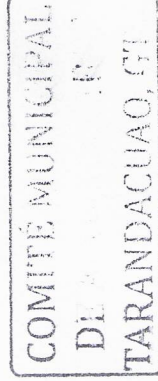 COMITÉ MUNICIPAL
DI
TARANDACUAO, GT